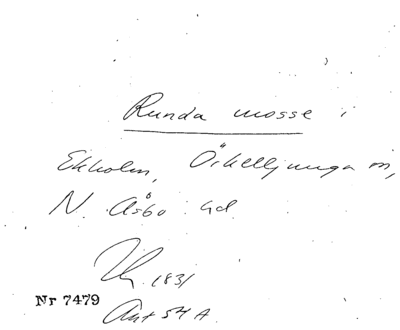 Runda mosse i
Ekholm, Örkelljunga sn,
N. Åsbo hd.
1831
Nr 7479
Ant 54 A